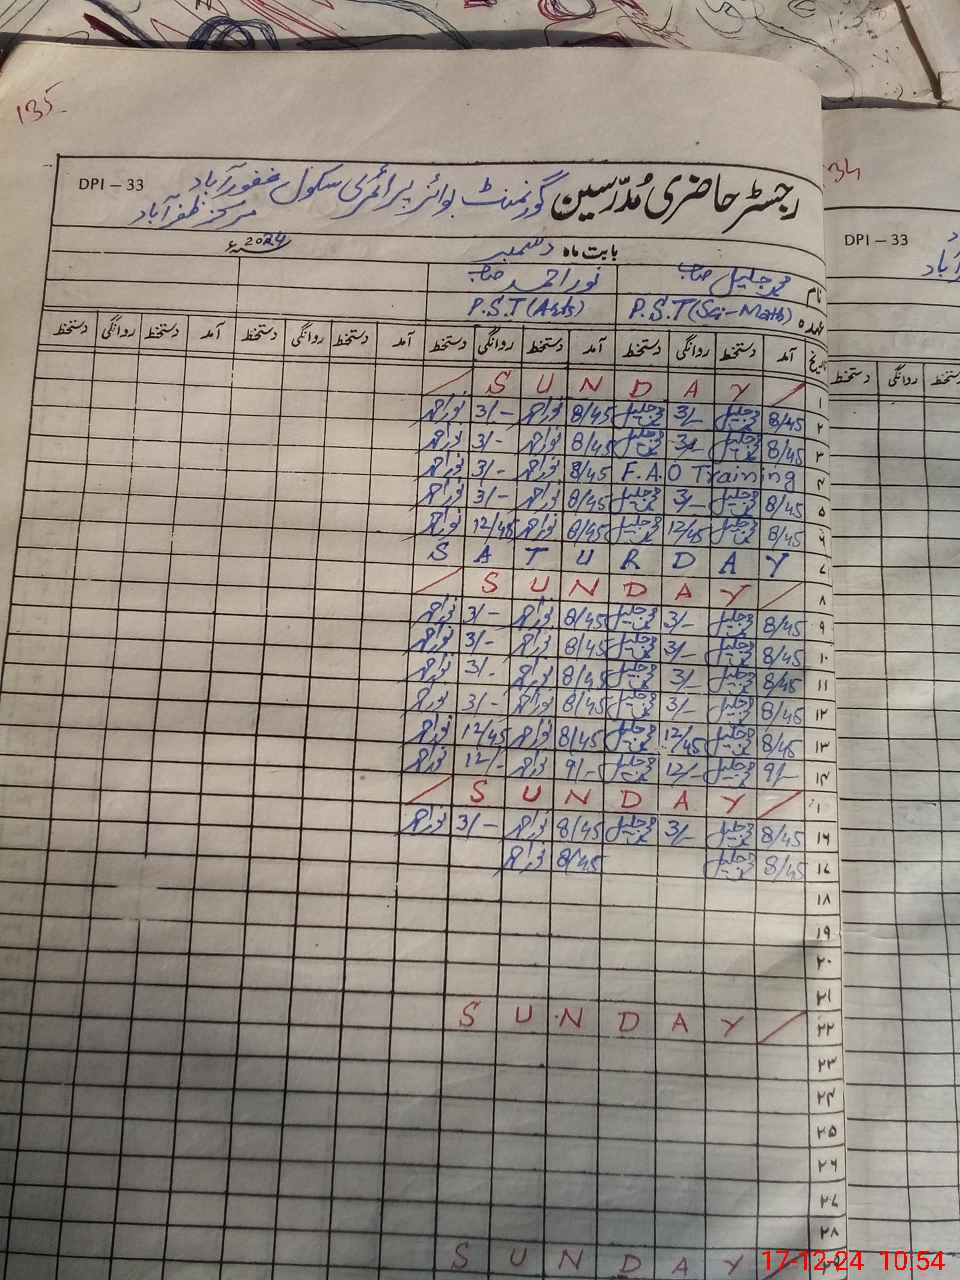 135
DPI – 33 رجسٹر حاضری مُدرّسین گورنمنٹ بوائز پرائمری سکول غفور آباد
مرکز ظفر آباد
بابت ماہ دسمبر 2024ء
نام محمد جلیل صاحب نور احمد صاحب
عہدہ P.S.T (Sci-Math) P.S.T (Arts)
تاریخ آمد دستخط روانگی دستخط آمد دستخط روانگی دستخط آمد دستخط روانگی دستخط آمد دستخط روانگی دستخط
۱ S U N D A Y
۲ 8/45 محمد جلیل 3/– محمد جلیل 8/45 نوراحمد 3/– نوراحمد
۳ 8/45 محمد جلیل 3/– محمد جلیل 8/45 نوراحمد 3/– نوراحمد
۴ F.A.O Training 8/45 نوراحمد 3/– نوراحمد
۵ 8/45 محمد جلیل 3/– محمد جلیل 8/45 نوراحمد 3/– نوراحمد
۶ 8/45 محمد جلیل 12/45 محمد جلیل 8/45 نوراحمد 12/45 نوراحمد
۷ S A T U R D A Y
۸ S U N D A Y
۹ 8/45 محمد جلیل 3/– محمد جلیل 8/45 نوراحمد 3/– نوراحمد
۱۰ 8/45 محمد جلیل 3/– محمد جلیل 8/45 نوراحمد 3/– نوراحمد
۱۱ 8/45 محمد جلیل 3/– محمد جلیل 8/45 نوراحمد 3/– نوراحمد
۱۲ 8/45 محمد جلیل 3/– محمد جلیل 8/45 نوراحمد 3/– نوراحمد
۱۳ 8/45 محمد جلیل 12/45 محمد جلیل 8/45 نوراحمد 12/45 نوراحمد
۱۴ 9/– محمد جلیل 12/– محمد جلیل 9/– نوراحمد 12/– نوراحمد
S U N D A Y
۱۶ 8/45 محمد جلیل 3/– محمد جلیل 8/45 نوراحمد 3/– نوراحمد
۱۷ 8/45 محمد جلیل 8/45 نوراحمد
۱۸
۱۹
۲۰
۲۱
۲۲ S U N D A Y
۲۳
۲۴
۲۵
۲۶
۲۷
۲۸
S U N D A Y
DPI – 33
آباد
دستخط روانگی
17-12-24 10:54